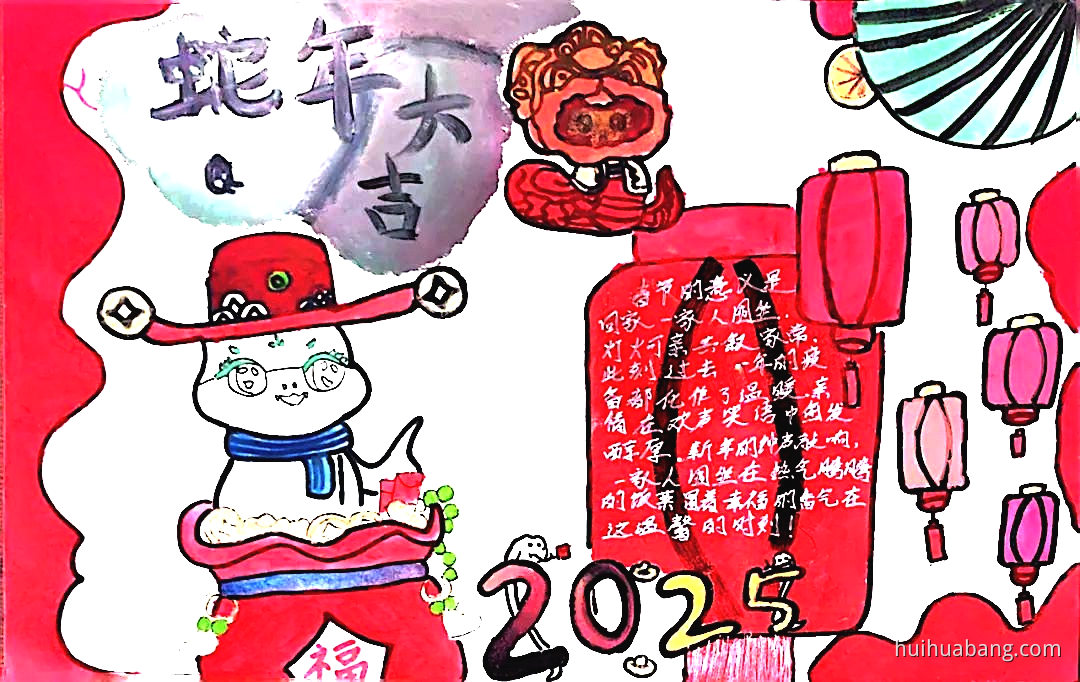 蛇年大吉
春节的意义是
回家一家人围坐.
灯火可亲共叙家常.
此刻过去一年的疲
备都化作了温暖.亲
情在欢声笑语中愈发
醇厚.新年的钟声敲响,
一家人围坐在热气腾腾
的饭菜围着幸福的香气在
这温馨的时刻
2025
福
huihuabang.com